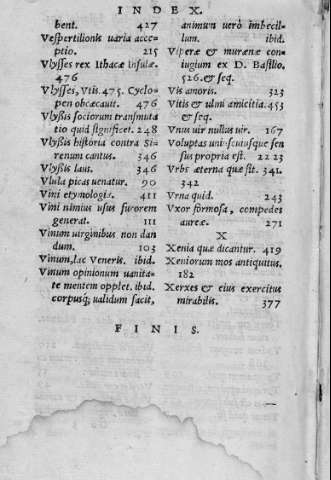 INDEX.
bent. 427
Vespertilionis uaria acceptio. 215
Vlysses rex Ithacæ Insulæ.
476
Vlysses, Vtis. 475. Cyclo-
pen obcæcauit. 476
Vlyßis sociorum transmuta
tio quid significet. 248
Vlyßis historia contra Si-
renum cantus. 346
Vlyßis laus. 346
Vlula picas uenatur. 90
Vini etymologia. 411
Vini nimius usus furorem
generat. 111
Vinum uirginibus non dan
dum. 103
Vinum, lac Veneris. ibid.
Vinum opinionum uanita-
te mentem opplet. ibid.
corpusq́; ualidum facit,
animum uerò imbecil-
lum. ibid.
Viperæ & murænæ con-
iugium ex D. Basilio.
526. & seq.
Vis amoris. 323
Vitis & ulmi amicitia. 453
& seq.
Vnus uir nullus uir. 167
Voluptas uniuscuiusque sen
sus propria est. 22 23
Vrbs æterna quæ sit. 341.
342
Vrna quid. 243
Vxor formosa, compedes
aureæ. 271
X
Xenia quæ dicantur. 419
Xeniorum mos antiquitus.
182
Xerxes & eius exercitus
mirabilis. 377
FINIS.